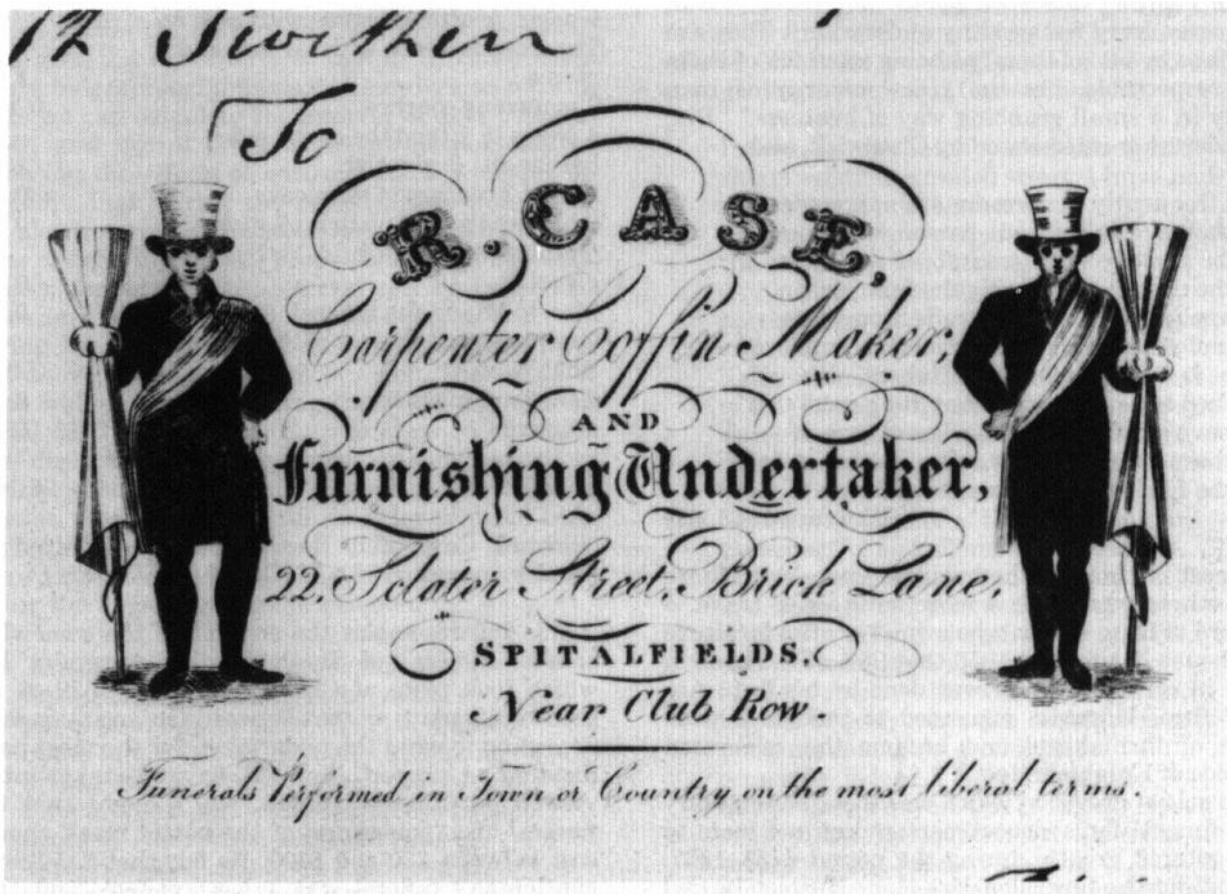 12 Swithen
To
R. CASE,
Carpenter Coffin Maker,
AND
Furnishing Undertaker,
22, Sclater Street, Brick Lane,
SPITALFIELDS,
Near Club Row.
Funerals Performed in Town or Country on the most liberal terms.